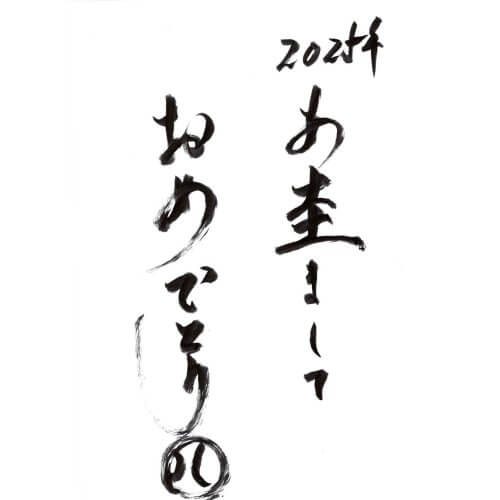 2025年
あ圭まして
おめでとう